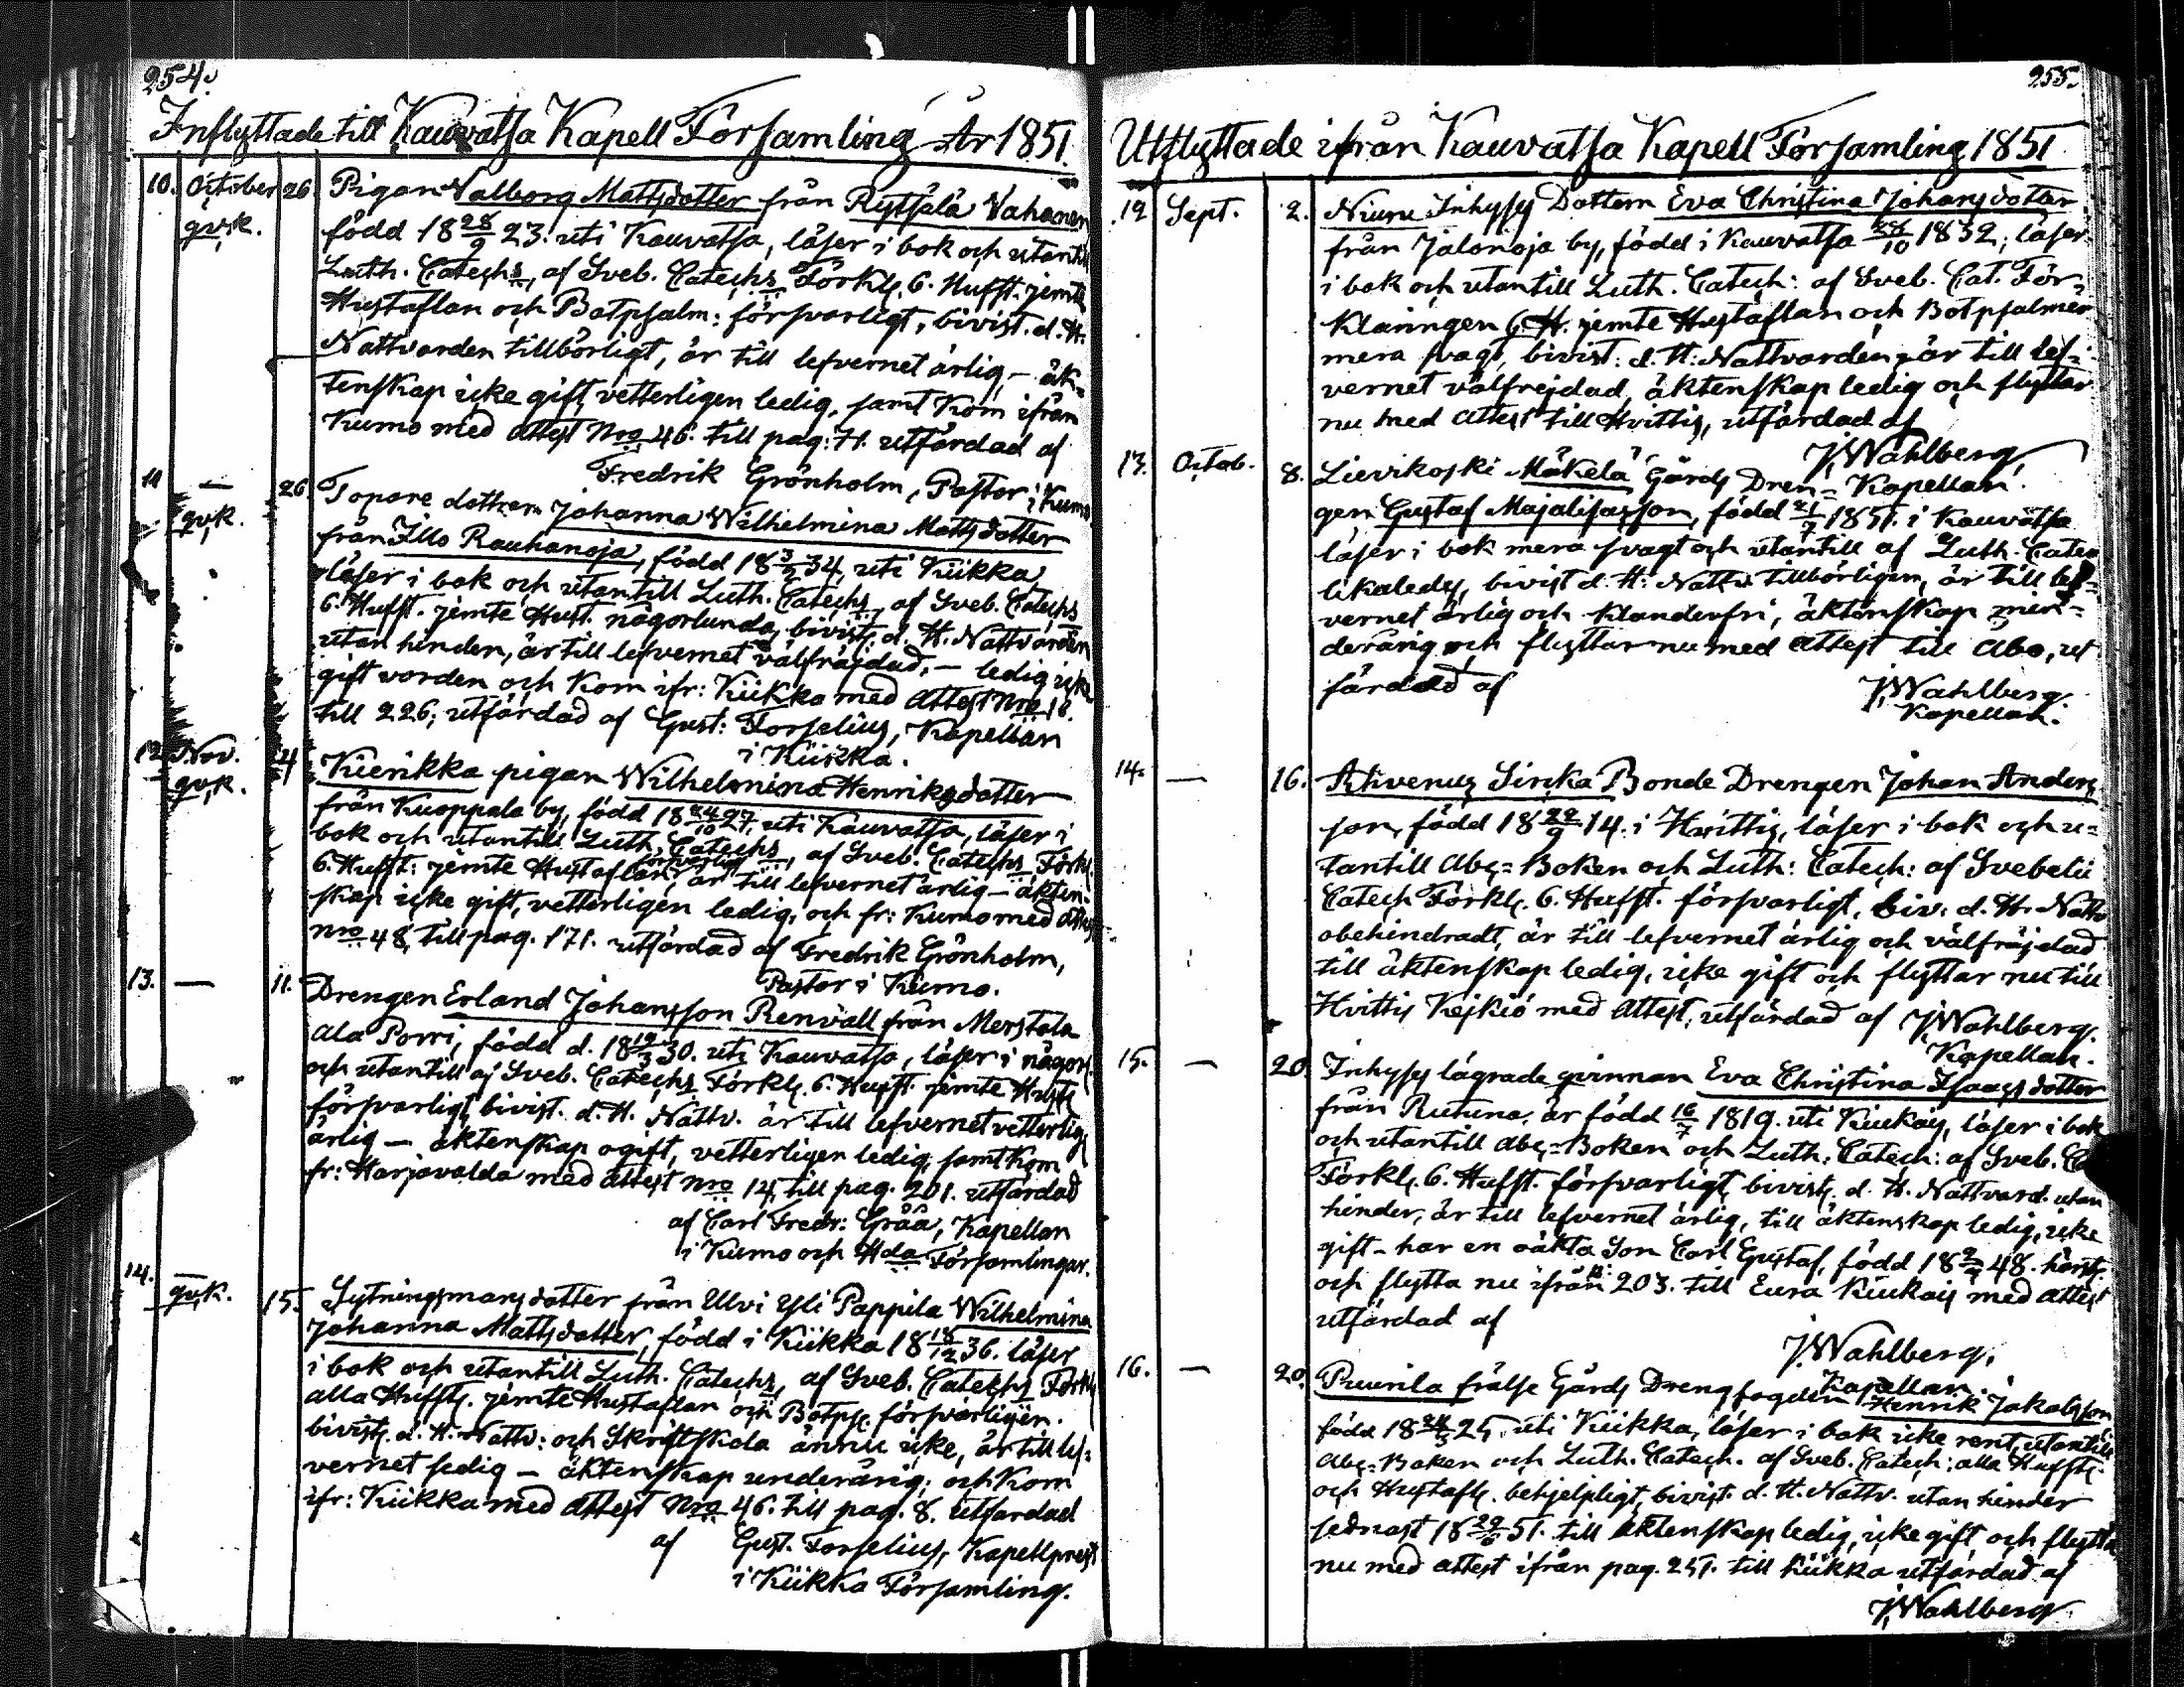 254.
Inflyttade till Kauvatsa Kapell Församling År 1851.
10. October 26. Pigan Valborg Mattsdotter från Rytsälä Vahanen
qvk. född 18 28/9 23. uti Kauvatsa, läser i bok och utantill
Luth. Catechs, af Sveb. Catechs Förkl. 6. Hufst. jemte
Hustaflan och Botpsalm: försvarligt, bivist. d. H.
Nattvarden tillbörligt, är till lefvernet ärlig, – äk-
tenskap icke gift, vetterligen ledig, samt kom ifrån
Kumo med attest Nro 46. till pag: 71. utfärdad af
Fredrik Grönholm, Pastor i Kumo
11 — 26. Topare dottren Johanna Wilhelmina Mattsdotter
qvk. från Illo Rauhanoja, född 18 3/2 34, uti Kiikka,
läser i bok och utantill Luth. Catechs, af Sveb. Catechs
6. Hufst. jemte Hust. någorlunda, bivist. d. H. Nattvarden
utan hinder, är till lefvernet välfräjdad, – ledig icke
gift vorden och kom ifr: Kiikka med attest Nro 18.
till 226; utfärdad af Gust: Forselius, Kapellan
i Kiikka.
12 Nov. 4 Kierikka pigan Wilhelmina Henriksdotter
qvk. från Kuoppala by, född 18 24/10 27, uti Kauvatsa, läser i
bok och utantill Luth. Catechs, af Sveb. Catechs Förkl.
6. Hufst: jemte Hustaflan försvarligt, är till lefvernet ärlig – äkten-
skap icke gift, vetterligen ledig, och fr: Kumo med attest
Nro 48, till pag. 171. utfärdad af Fredrik Grönholm,
Pastor i Kumo.
13. — 11. Drengen Erland Johansson Renvall från Merstola
Ala Porri, född d. 18 19/3 30. uti Kauvatsa, läser i någorl.
och utantill af Sveb. Catechs Förkl. 6. Hufst. jemte Hust.
försvarligt, bivist. d. H. Nattv. är till lefvernet vetterlig
ärlig – äktenskap ogift, vetterligen ledig, samt kom
fr: Harjavalda med attest Nro 14, till pag. 201. utfärdad
af Carl Fredr: Gråå, Kapellan
i Kumo och Hda Församlingar.
14. — 15. Sytningsmans dotter från Ulvi Yli Pappila Wilhelmina
qvk. Johanna Mattsdotter, född i Kiikka 18 18/12 36. läser
i bok och utantill Luth. Catechs, af Sveb. Catechs Förkl.
alla Hufst. jemte Hustaflan och Botps. försvarligen.
bivist. d. H. Nattv: och Skriftskola ännu icke, är till lef-
vernet sedig – äktenskap underårig; och kom
ifr: Kiikka med attest Nro 46. till pag. 8. utfärdad
af Gust. Forselius, Kapellprest
i Kiikka Församling.
255.
Utflyttade ifrån Kauvatsa Kapell Församling 1851
12 Sept. 2. Niuru Inhyses Dottern Eva Christina Johansdotter
från Jalonoja by, född i Kauvatsa 24/10 1832; läser
i bok och utantill Luth. Catech: af Sveb. Cat. För-
klaringen 6. H. jemte Hustaflan och Botpsalmer
mera svagt, bivist: d. H: Nattvarden, är till lef-
vernet välfrejdad, äktenskap ledig och flyttar
nu med attest till Hvittis, utfärdad af
J. Wahlberg,
Kapellan.
13. Octob. 8. Lievikoski Mäkelä Gårds Dren-
gen Gustaf Majalisasson, född 21/7 1851. i Kauvatsa
läser i bok mera svagt och utantill af Luth. Catec
likaledes, bivist d. H: Nattv. tillbörligen, är till lef-
vernet ärlig och klanderfri, äktenskap min-
derårig och flyttar nu med attest till Åbo, ut
färdad af J. Wahlberg.
Kapellan.
14. — 16. Ahvenus Sirka Bonde Drengen Johan Anders
son, född 18 22/9 14. i Hvittis, läser i bok och u-
tantill Abc-Boken och Luth: Catech: af Svebelii
Catech Förkl. 6. Hufst. försvarligt, biv: d. H. Nattv
obehindradt, är till lefvernet ärlig och välfräjdad
till äktenskap ledig, icke gift och flyttar nu till
Hvittis Kejkiö med attest, utfärdad af J. Wahlberg.
Kapellan.
15. — 20. Inhyses lägrade qvinnan Eva Christina Isaacs dotter
från Rutuna, är född 16/7 1819. uti Kiukais, läser i bok
och utantill Abc-Boken och Luth. Catech: af Sveb. Ca
Förkl. 6. Hufst. försvarligt, bivist. d. H. Nattvard. utan
hinder, är till lefvernet ärlig, till äktenskap ledig, icke
gift – har en oäkta Son Carl Gustaf, född 18 2/2 48. härst.
och flytta nu ifrån p: 203. till Eura Kiukais med attest
utfärdad af
J. Wahlberg,
Kapellan.
16. — 20. Puurila frälse Gårds Dreng fogden Henrik Jakobsson
född 18 24/3 25. uti Kiikka, läser i bok icke rent, utantill
Abc-Boken och Luth. Catech. af Sveb. Catech: alla Hufst.
och Hustafl. behjelpligt, bivist. d. H. Nattv. utan hinder
sednast 18 29/6 51. till äktenskap ledig, icke gift, och flytta
nu med attest ifrån pag. 251. till Kiikka utfärdad af
J. Wahlberg